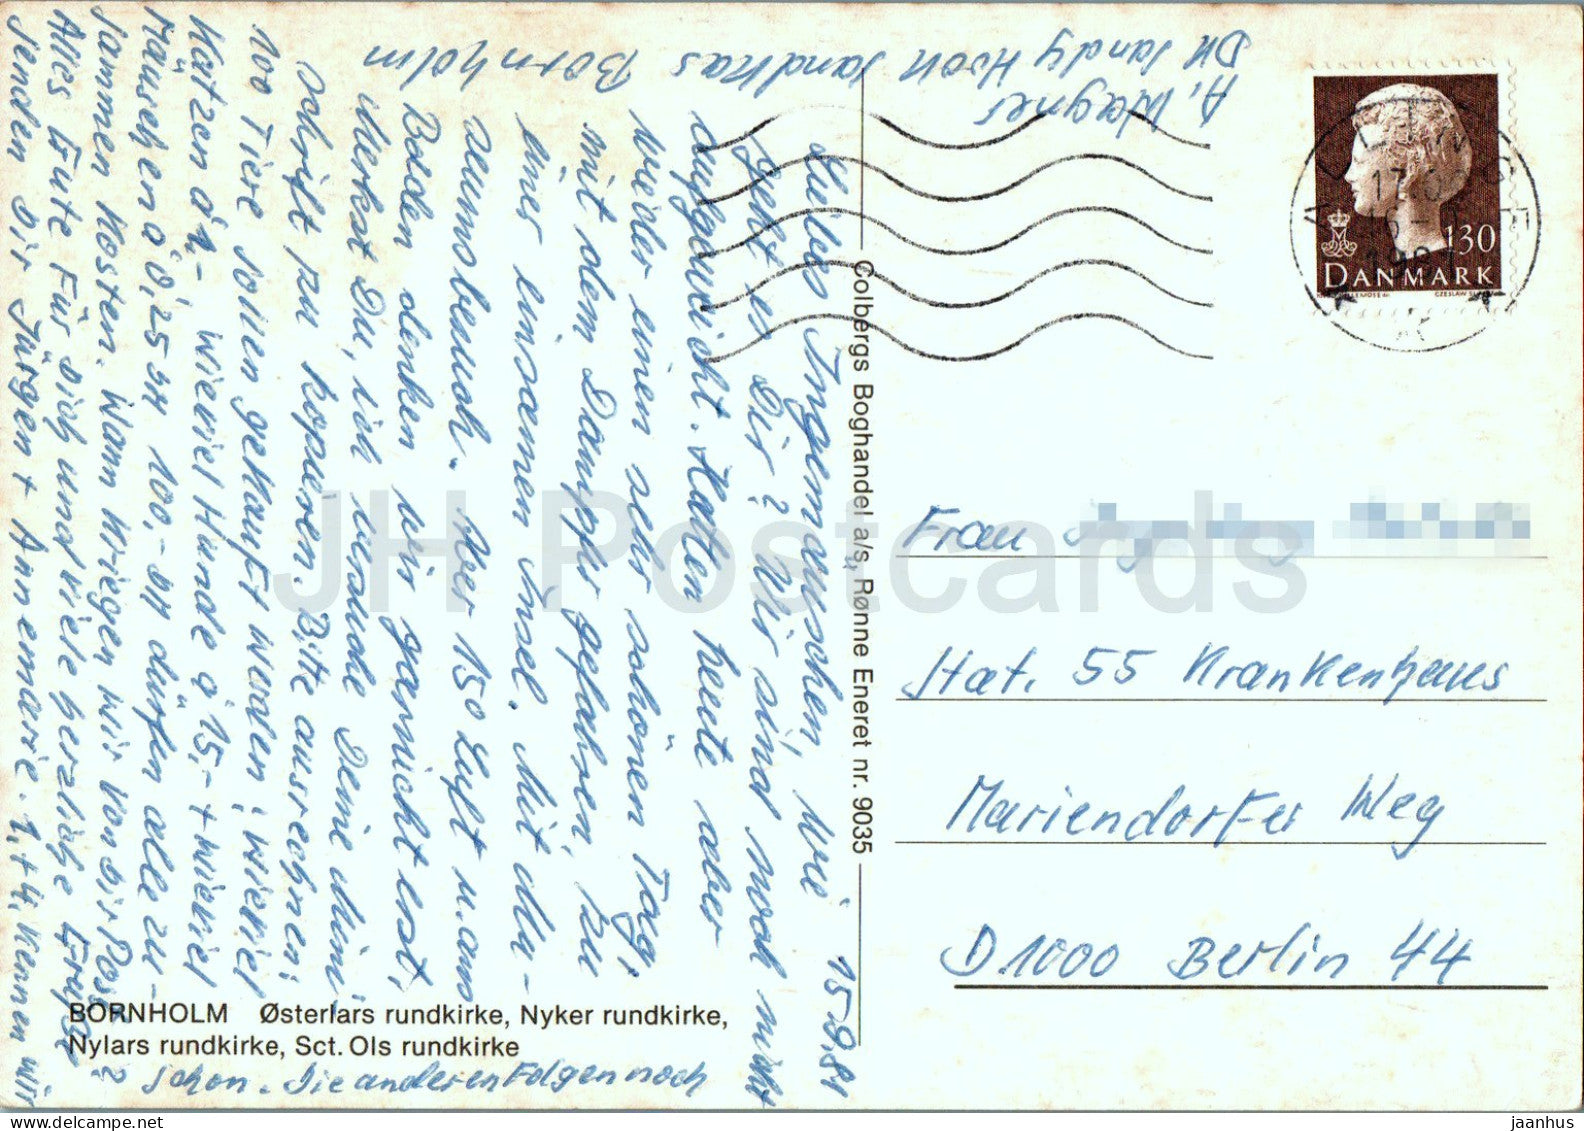 A. Wagner
DK Sandy Hook Sandkas
Bornholm
15.9.81
Liebes Ingemäuschen, wie
geht es Dir? Wir sind noch nicht
aufgeweicht. Hatten heute aber
wieder einen sehr schönen Tag,
mit dem Dampfer gefahren, zu
einer einsamen Insel. Mit
Aber 150 Luft u. am
Boden denken wir garnicht erst.
Merkst Du, ich versuche Deine Mini
Schrift zu kopieren. Bitte ausrechnen:
100 Tiere sollen gekauft werden; wieviel
Katzen á 1,- wieviel Hunde á 15,- + wieviel
Mäuschen á 0,25 DM 100,- DM dürfen alle zu-
sammen kosten. Wann kriegen wir von Dir Post?
Alles Gute für Dich und viele herzliche Grüße
senden Dir Jürgen + Annemarie. 1. + 4. kennen wir
schon. Die anderen Folgen noch
BORNHOLM Østerlars rundkirke, Nyker rundkirke,
Nylars rundkirke, Sct. Ols rundkirke
Colbergs Boghandel a/s, Rønne Eneret nr. 9035
130
DANMARK
CZESLAW
17.
Frau
Stat. 55 Krankenhaus
Mariendorfer Weg
D 1000 Berlin 44
JH Postcards
hippostcard.com
jaanhus